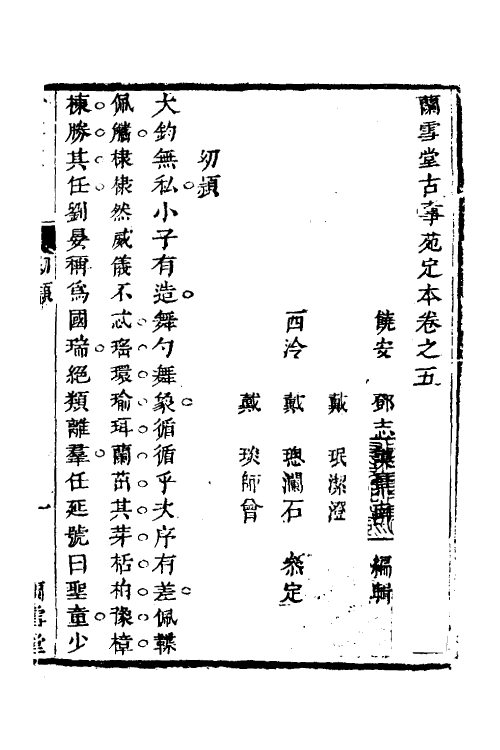 蘭雪堂古事苑定本卷之五
饒安 鄧志謨 編輯
戴 珉潔澄
西泠 戴 璁瀾石 叅定
戴 琰師曾
幼類
大鈞無私小子有造舞勺舞象循循乎大序有差佩韘
佩觿棣棣然威儀不忒瑤環瑜珥蘭茁其芽栝柏豫樟
棟勝其任劉晏稱爲國瑞絕類離羣任延號曰聖童少
幼類
一
蘭雪堂